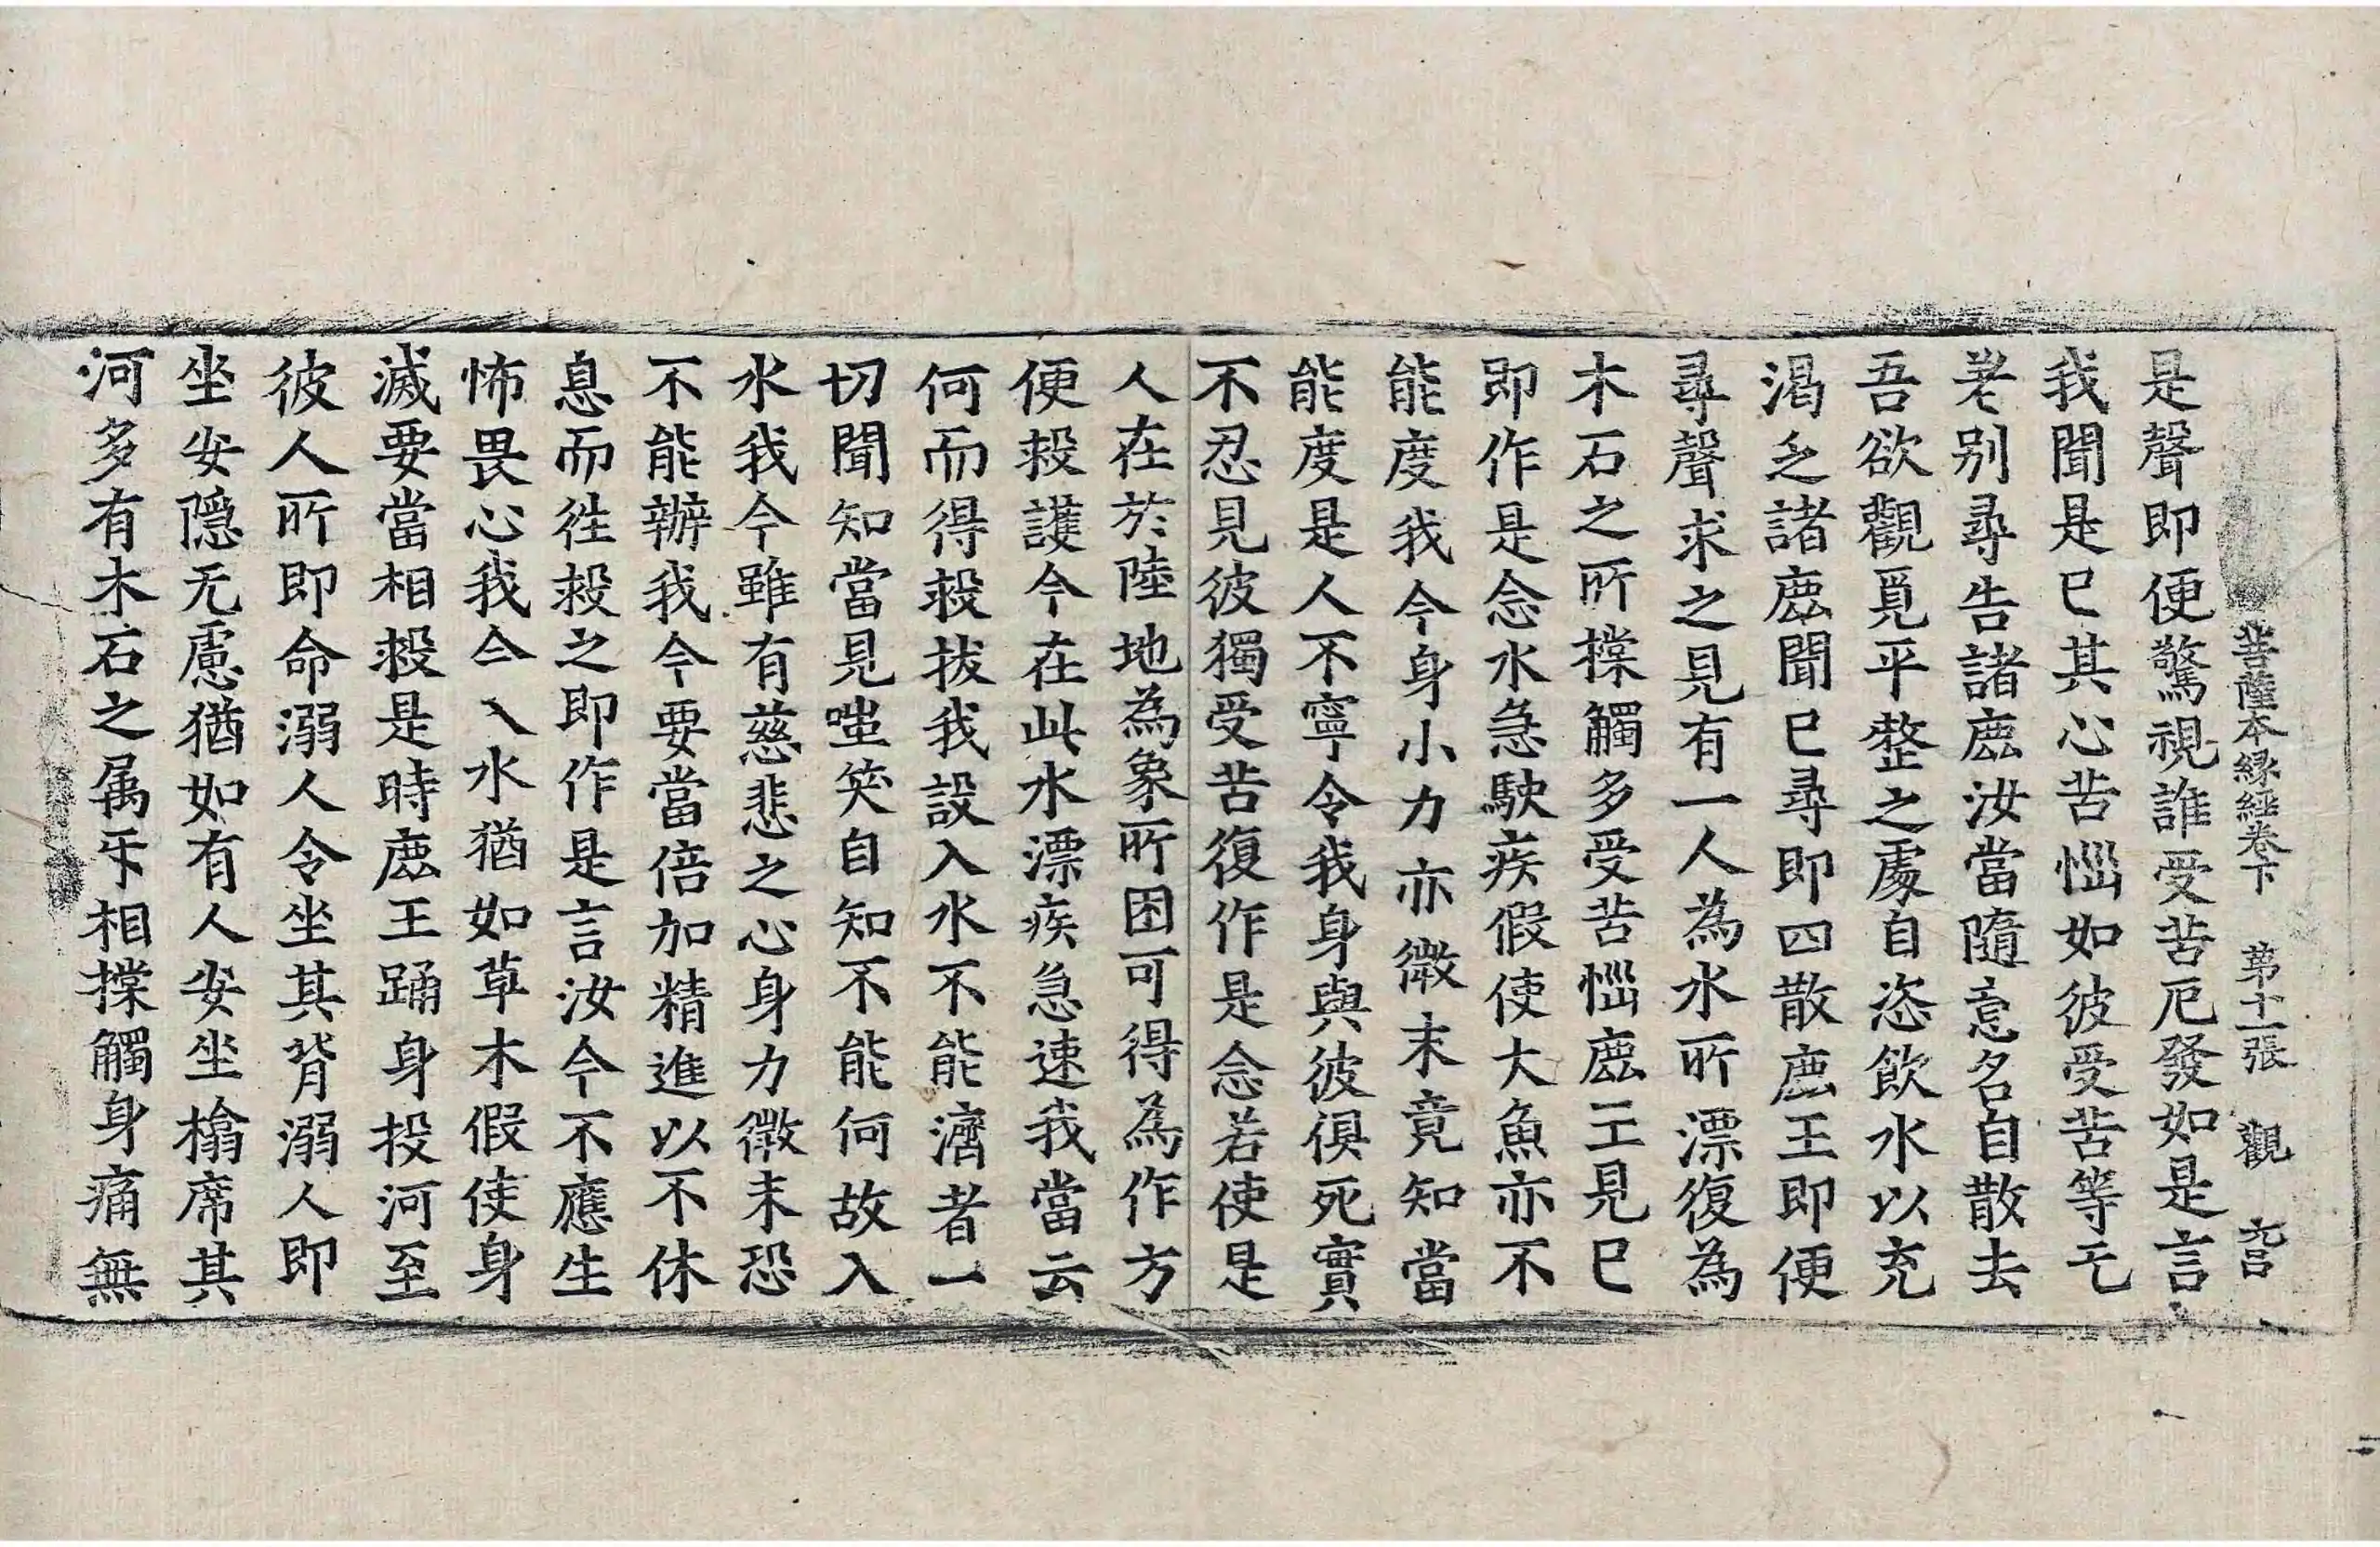 菩薩本縁經卷下 苐十一張 觀 六吕
是聲即便驚視誰受苦厄發如是言
我聞是已其心苦惱如彼受苦等无
差别尋告諸鹿汝當隨意各自散去
吾欲觀覓平整之處自恣飲水以充
渴乏諸鹿聞已尋即四散鹿王即便
尋聲求之見有一人為水所漂復為
木石之所摚觸多受苦惱鹿王見已
即作是念水急駛疾假使大魚亦不
能度我今身小力亦微末竟知當
能度是人不寧令我身與彼俱死實
不忍見彼獨受苦復作是念若使是
人在於陸地為象所困可得為作方
便救護今在此水漂疾急速我當云
何而得救拔我設入水不能濟者一
切聞知當見嗤笑自知不能何故入
水我今雖有慈悲之心身力微末恐
不能辦我今要當倍加精進以不休
息而徃救之即作是言汝今不應生
怖畏心我今入水猶如草木假使身
滅要當相救是時鹿王踊身投河至
彼人所即命溺人令坐其背溺人即
坐安隱无慮猶如有人安坐榻席其
河多有木石之属㸦相摚觸身痛無